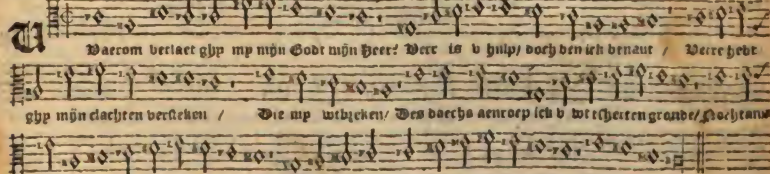 Waerom verlaet ghy my mijn Godt mijn Heer? Verre is v hulp/ doch ben ick benaut / Verre hebt
ghy mijn clachten versteken / Die my wtbreken/ Des daechs aenroep ick v wt tsherten gronde/ Nochtans